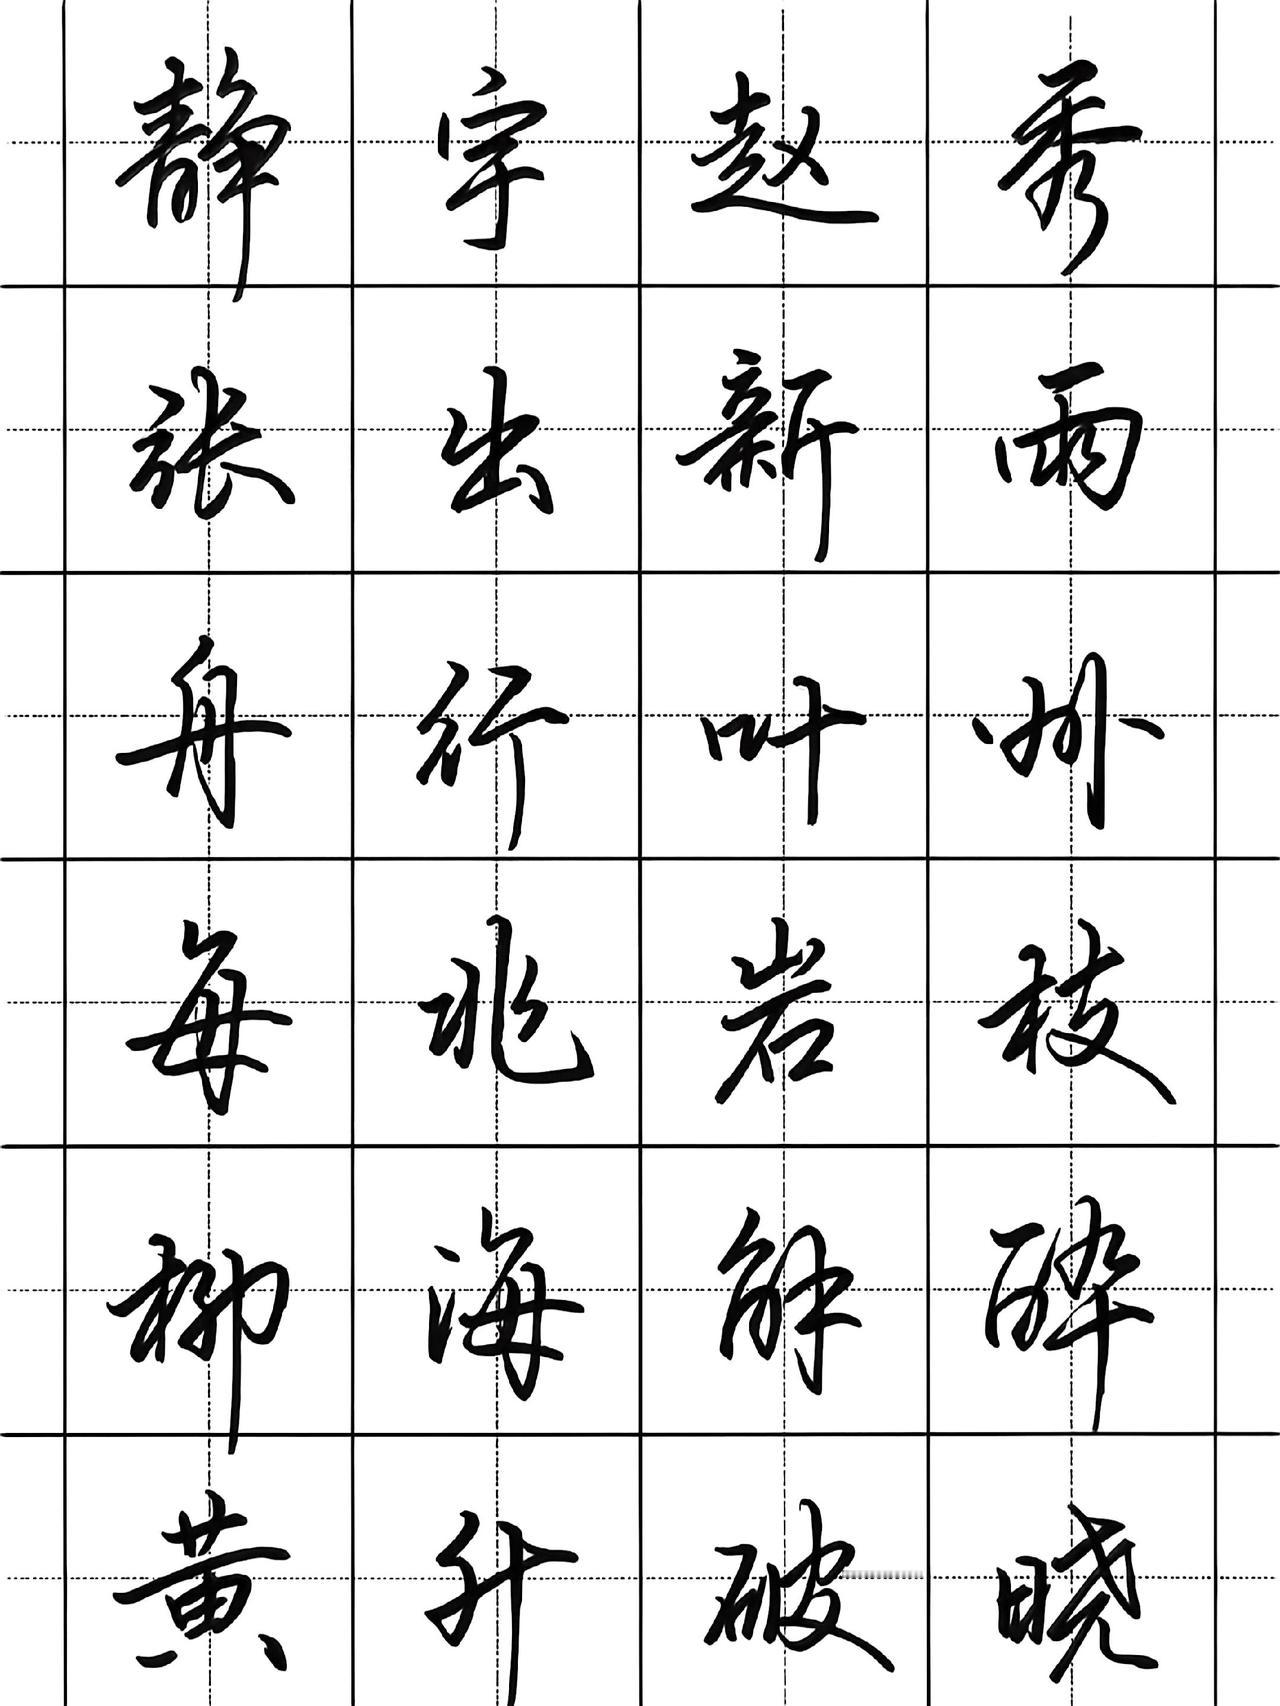 静宇赵秀
张出新雨
舟行叶州
每兆岩枝
柳海解醉
黄升破晓